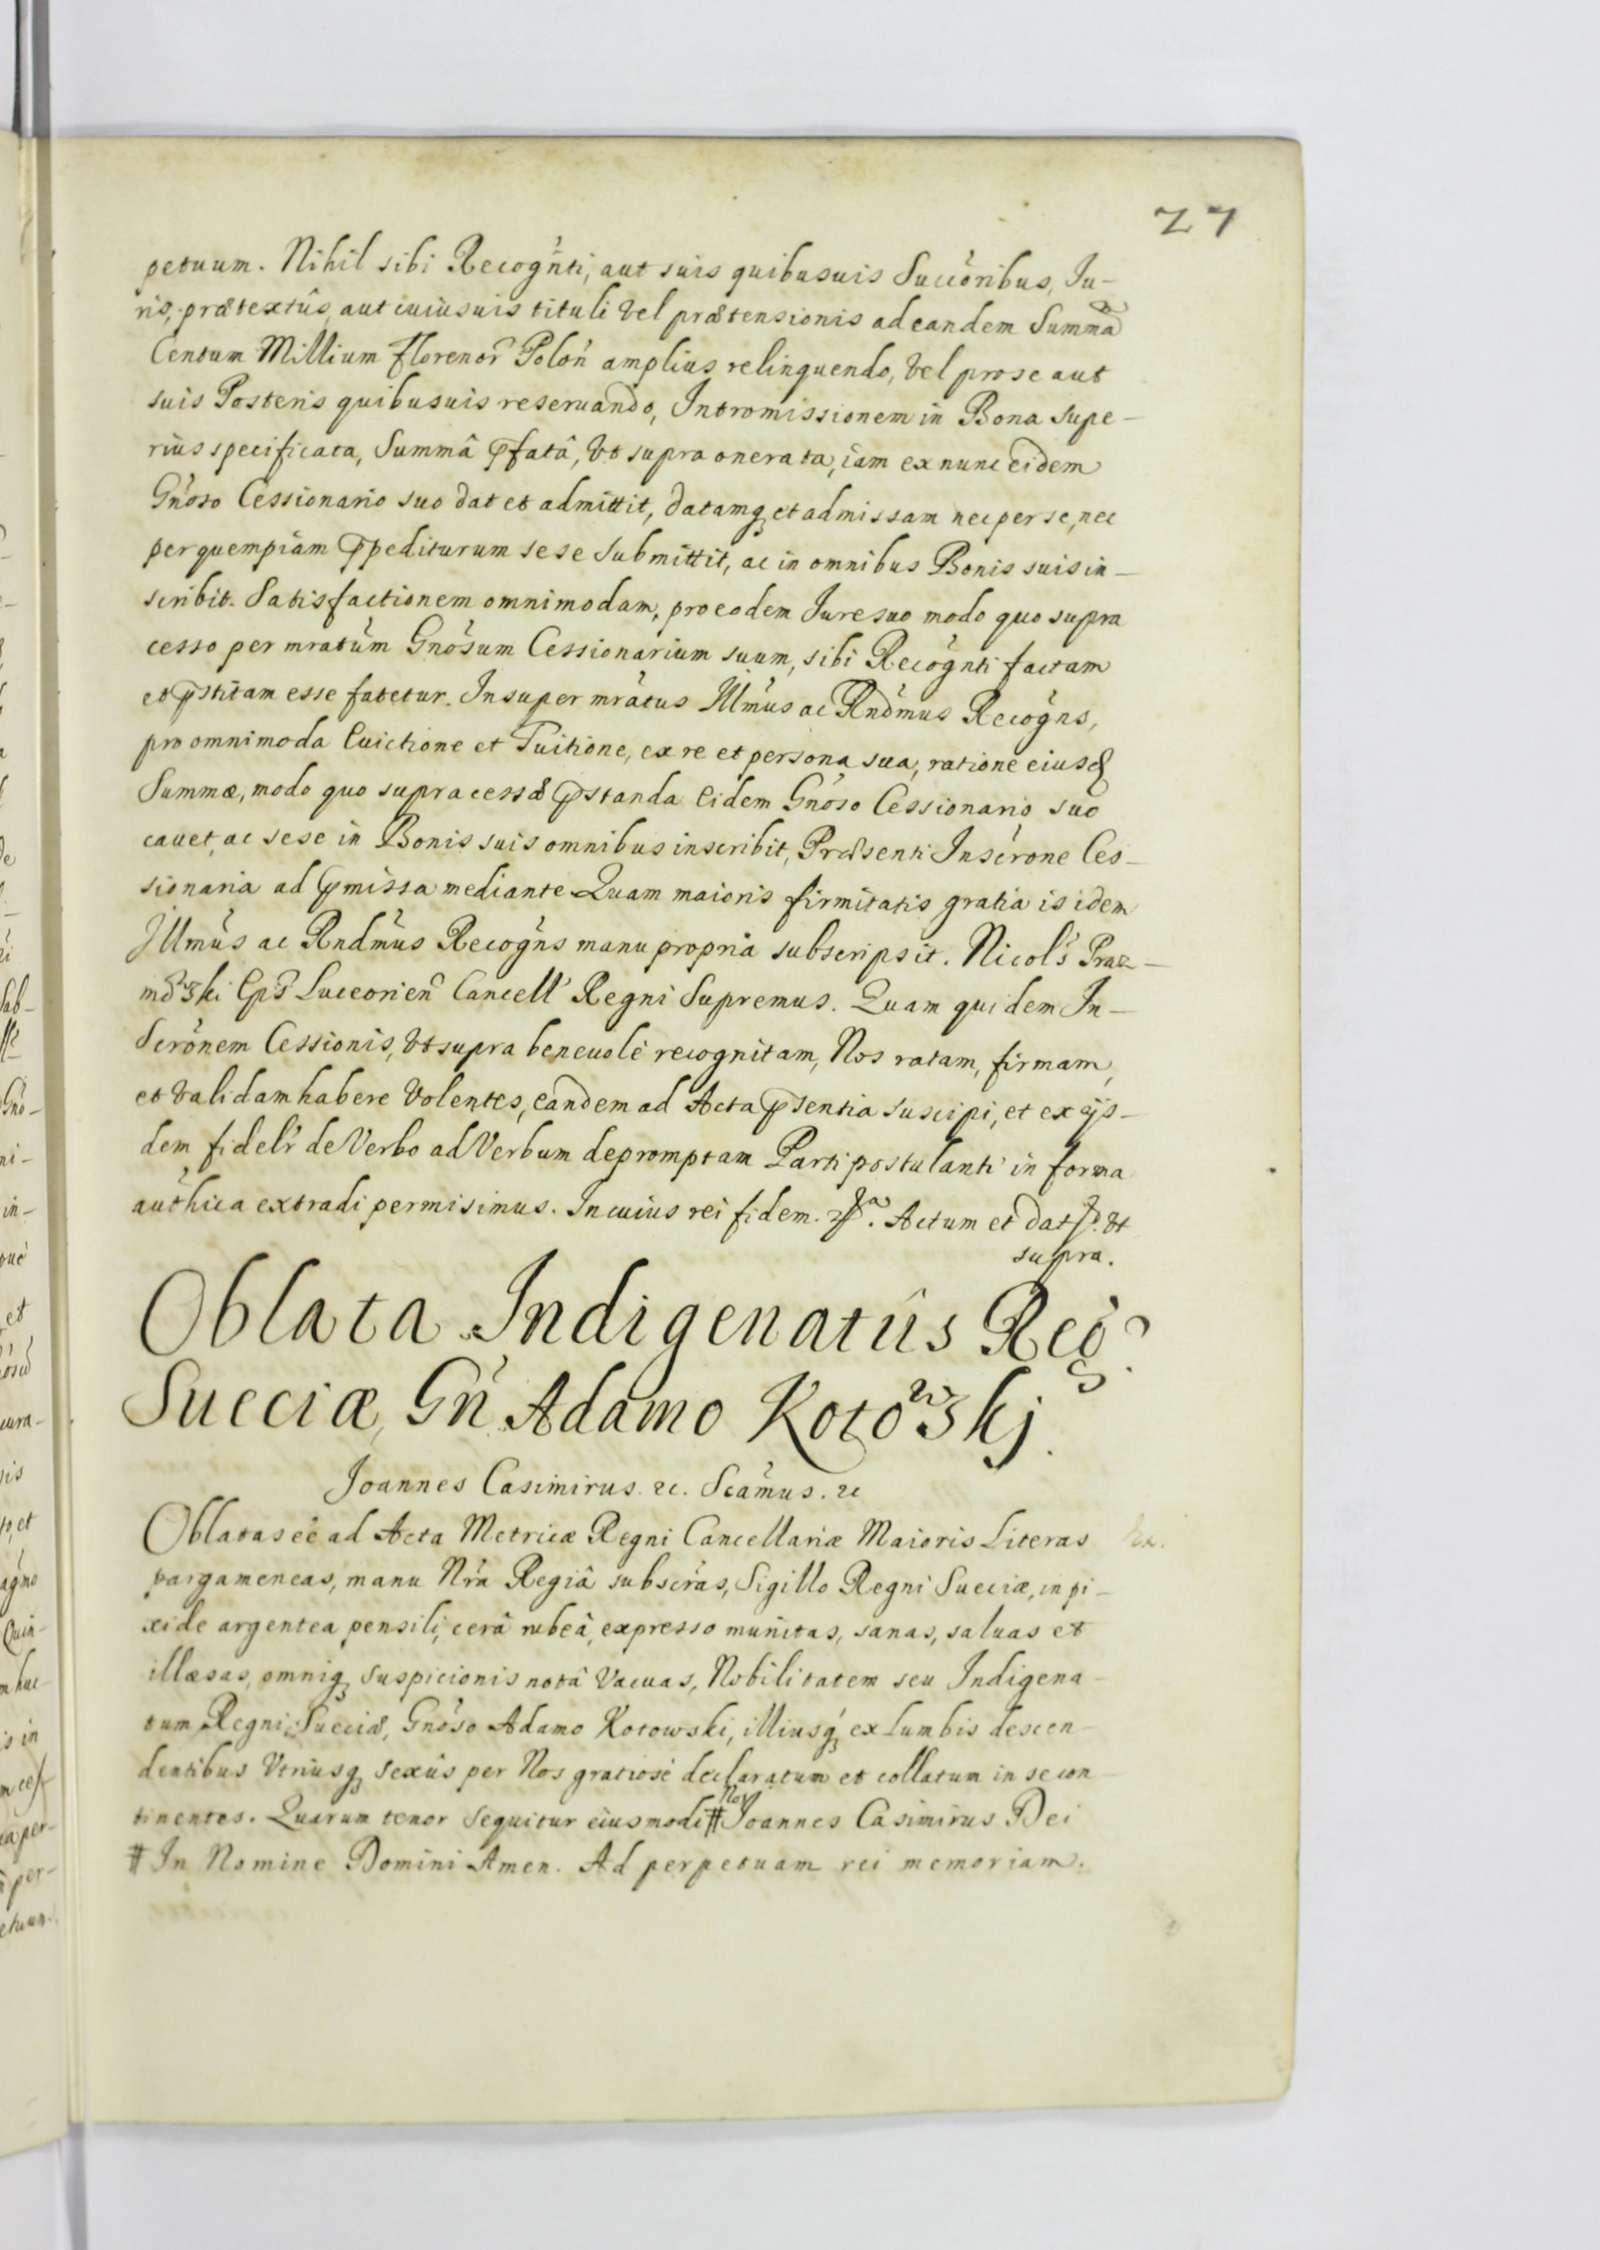 27
petuum. Nihil sibi Recogn̄ti, aut suis quibusuis Succ̄oribus, Iu-
ris, prætextûs, aut cuiusuis tituli vel prætensionis ad eandem Summā
Centum Millium florenor̄ Polon̄ amplius relinquendo, vel pro se aut
suis Posteris quibusuis reseruando, Intromissionem in Bona supe-
rius specificata, Summâ p̄fatâ, vt supra onerata, iam ex nunc eidem
Gn̄oso Cessionario suo dat et admittit, datamq; et admissam nec per se, nec
per quempiam p̄pediturum sese submittit, ac in omnibus Bonis suis in-
scribit. Satisfactionem omnimodam, pro eodem Iure suo modo quo supra
cesso per mratum̄ Gnōsum Cessionarium suum, sibi Recogn̄ti factam
et p̄stitam esse fatetur. Insuper mrātus Illm̄us ac Rndm̄us Recogn̄s,
pro omnimoda Euictione et Tuitione, ex re et persona sua, ratione eiusd
Summæ, modo quo supra cessæ p̄standa Eidem Gnōso Cessionario suo
cauet, ac sese in Bonis suis omnibus inscribit, Præsenti Inscr̄one Ces-
sionaria ad p̄missa mediante Quam maioris firmitatis gratia is idem
Illm̄us ac Rndm̄us Recogn̄s manu propria subscripsit. Nicol̄s Praz-
mowski Ep̄s Luceorien̄ Cancell̄ Regni Supremus. Quam quidem In-
Scrōnem Cessionis, vt supra beneuolè recognitam, Nos ratam, firmam,
et validam habere volentes, eandem ad Acta p̄sentia suscipi, et ex ijs-
dem fidelr̄ de Verbo ad Verbum depromptam Parti postulanti in forma
auth̄ica extradi permisimus. In cuius rei fidem. Actum et dat vt
supra.
Oblata Indigenatûs Reg
Sueciæ, Gn̄ Adamo Kotowskj.
Joannes Casimirus. &c. Scam̄us. &c
Oblatas ēē ad Acta Metricæ Regni Cancellariæ Maioris Literas
pargameneas, manu Nrā Regiâ subscrās, Sigillo Regni Sueciæ, in pi-
xide argentea pensili, cerâ rubeâ, expresso munitas, sanas, saluas et
illæsas, omniq; suspicionis notâ vacuas, Nobilitatem seu Indigena-
tum Regni Sueciæ, Gnōso Adamo Kotowski, illiusq; ex Lumbis descen-
dentibus Vtriusq; sexûs per Nos gratiosè declaratum et collatum in se con-
tinentes. Quarum tenor sequitur eiusmodi # Nos Joannes Casimirus Dei
# In Nomine Domini Amen. Ad perpetuam rei memoriam.